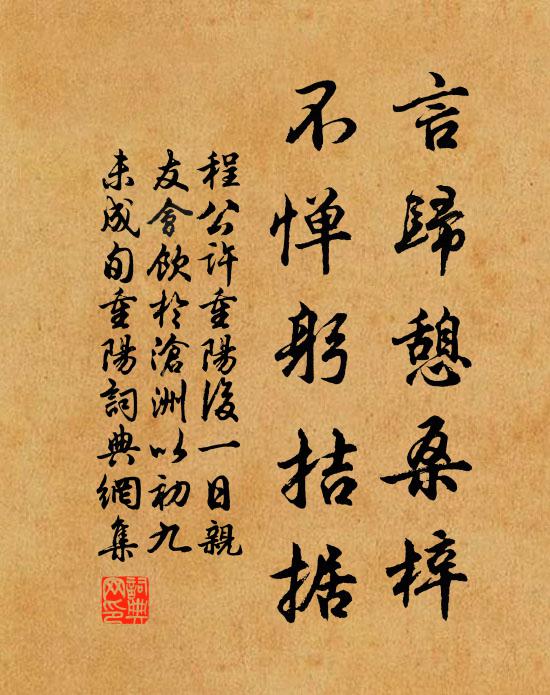 言歸憩桑梓
不惮躬拮据
程公许重陽後一日親
友會飲於滄洲以初九
未成旬重陽詞典網集
詞典网印